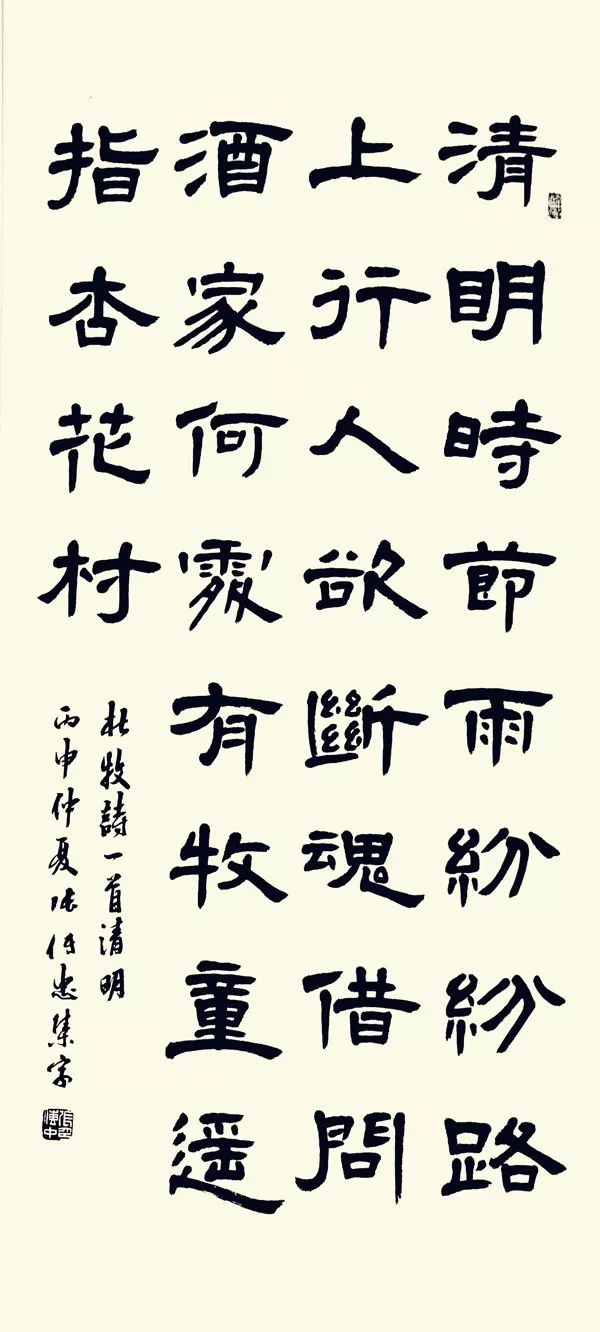 清明時節雨紛紛路
上行人欲斷魂借問
酒家何處有牧童遥
指杏花村
杜牧詩一首清明
丙申仲夏张传忠集字